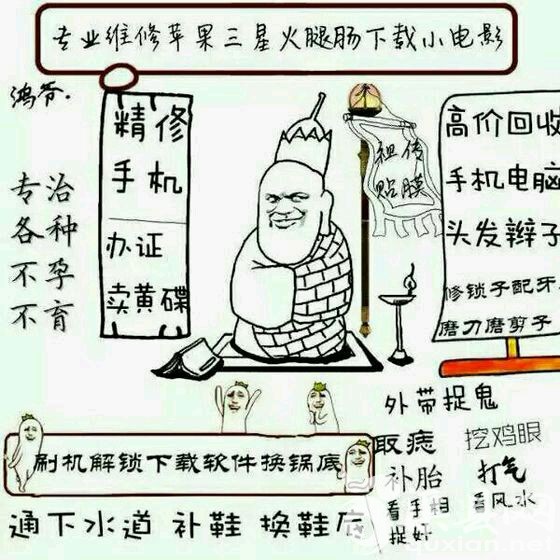 专业维修苹果三星火腿肠下载小电影
鸿爷.
精修
手机
办证
卖黄碟
专治
各种
不孕
不育
祖传
贴膜
高价回收
手机电脑
头发辫子
修锁子配牙
磨刀磨剪子
外带捉鬼
取痣 挖鸡眼
补胎 打气
看手相 看风水
捉奸
刷机解锁下载软件换锅底
通下水道 补鞋 换鞋底